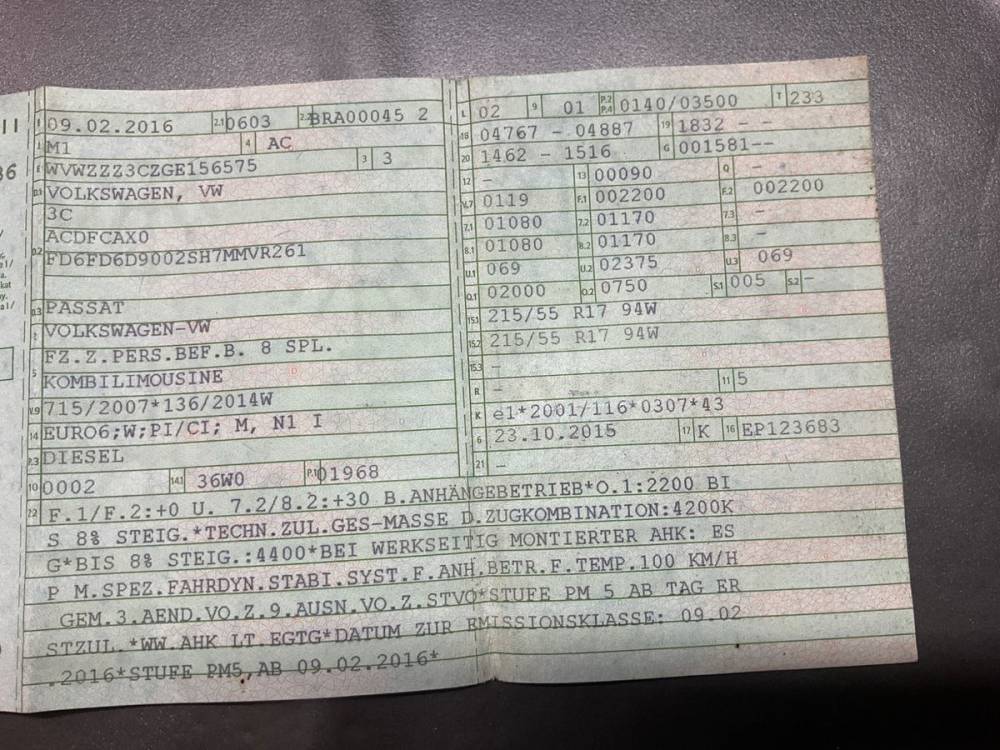 09.02.2016 2.1 0603 2.2 BRA00045 2
J M1 4 AC
E WVWZZZ3CZGE156575 3 3
D.1 VOLKSWAGEN, VW
3C
ACDFCAX0
D.2 FD6FD6D9002SH7MMVR261
D.3 PASSAT
2 VOLKSWAGEN-VW
FZ.Z.PERS.BEF.B. 8 SPL.
5 KOMBILIMOUSINE
V.9 715/2007*136/2014W
14 EURO6;W;PI/CI; M, N1 I
P.3 DIESEL
10 0002 14.1 36W0 P.1 01968
L 02 9 01 P.2 P.4 0140/03500 T 233
18 04767 - 04887 19 1832 - -
20 1462 - 1516 G 001581--
12 - 13 00090 Q -
V.7 0119 F.1 002200 F.2 002200
7.1 01080 7.2 01170 7.3 -
8.1 01080 8.2 01170 8.3 -
U.1 069 U.2 02375 U.3 069
O.1 02000 O.2 0750 S.1 005 S.2 -
15.1 215/55 R17 94W
15.2 215/55 R17 94W
15.3 -
R - 11 5
K e1*2001/116*0307*43
6 23.10.2015 17 K 16 EP123683
21 -
22 F.1/F.2:+0 U. 7.2/8.2:+30 B.ANHÄNGEBETRIEB*O.1:2200 BI
S 8% STEIG.*TECHN.ZUL.GES-MASSE D.ZUGKOMBINATION:4200K
G*BIS 8% STEIG.:4400*BEI WERKSEITIG MONTIERTER AHK: ES
P M.SPEZ.FAHRDYN.STABI.SYST.F.ANH.BETR.F.TEMP.100 KM/H
GEM.3.AEND.VO.Z.9.AUSN.VO.Z.STVO*STUFE PM 5 AB TAG ER
STZUL.*WW.AHK LT.EGTG*DATUM ZUR EMISSIONSKLASSE: 09.02
.2016*STUFE PM5,AB 09.02.2016*